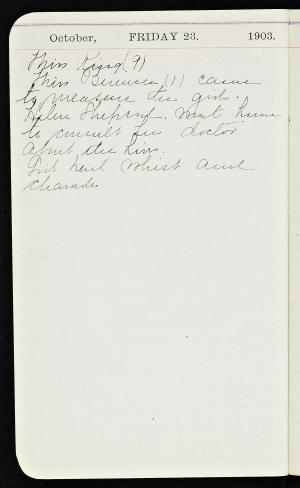 October, FRIDAY 23. 1903.
Miss King (9)
Miss (1) came
to measure the girls.
Helen Sheprod. went home
to consult her doctor
about the
Girls had whist and
charades